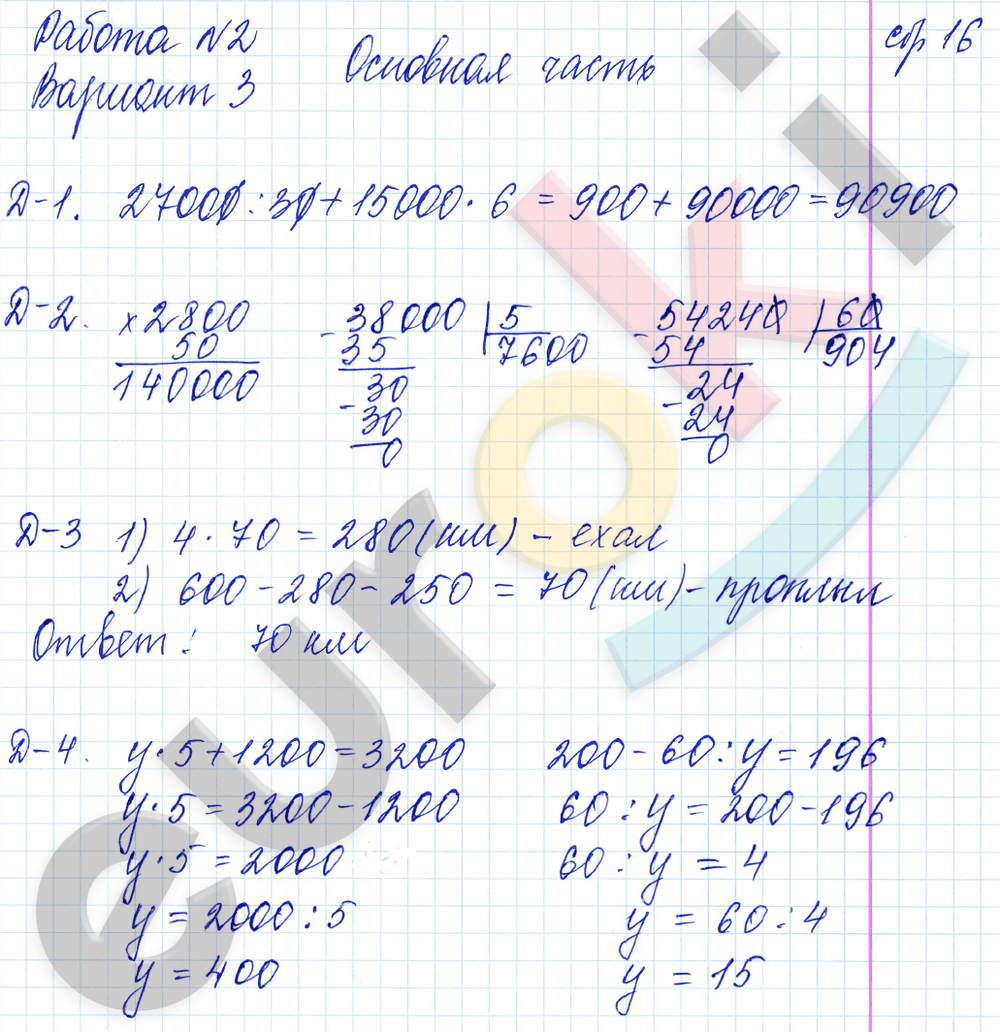 Работа №2
Вариант 3
Основная часть
стр 16
Д-1. 27000:30+15000·6 = 900+90000=90900
Д-2. ×2800 -38000 |5 -54240 |60
50 35 7600 54 904
140000 30 24
-30 -24
0 0
Д-3 1) 4·70 = 280(км) - ехал
2) 600-280-250 = 70(км)- проплыл
Ответ: 70 км
Д-4. y·5+1200=3200 200-60:y=196
y·5=3200-1200 60:y=200-196
y·5=2000 60:y=4
y=2000:5 y=60:4
y=400 y=15
euroki